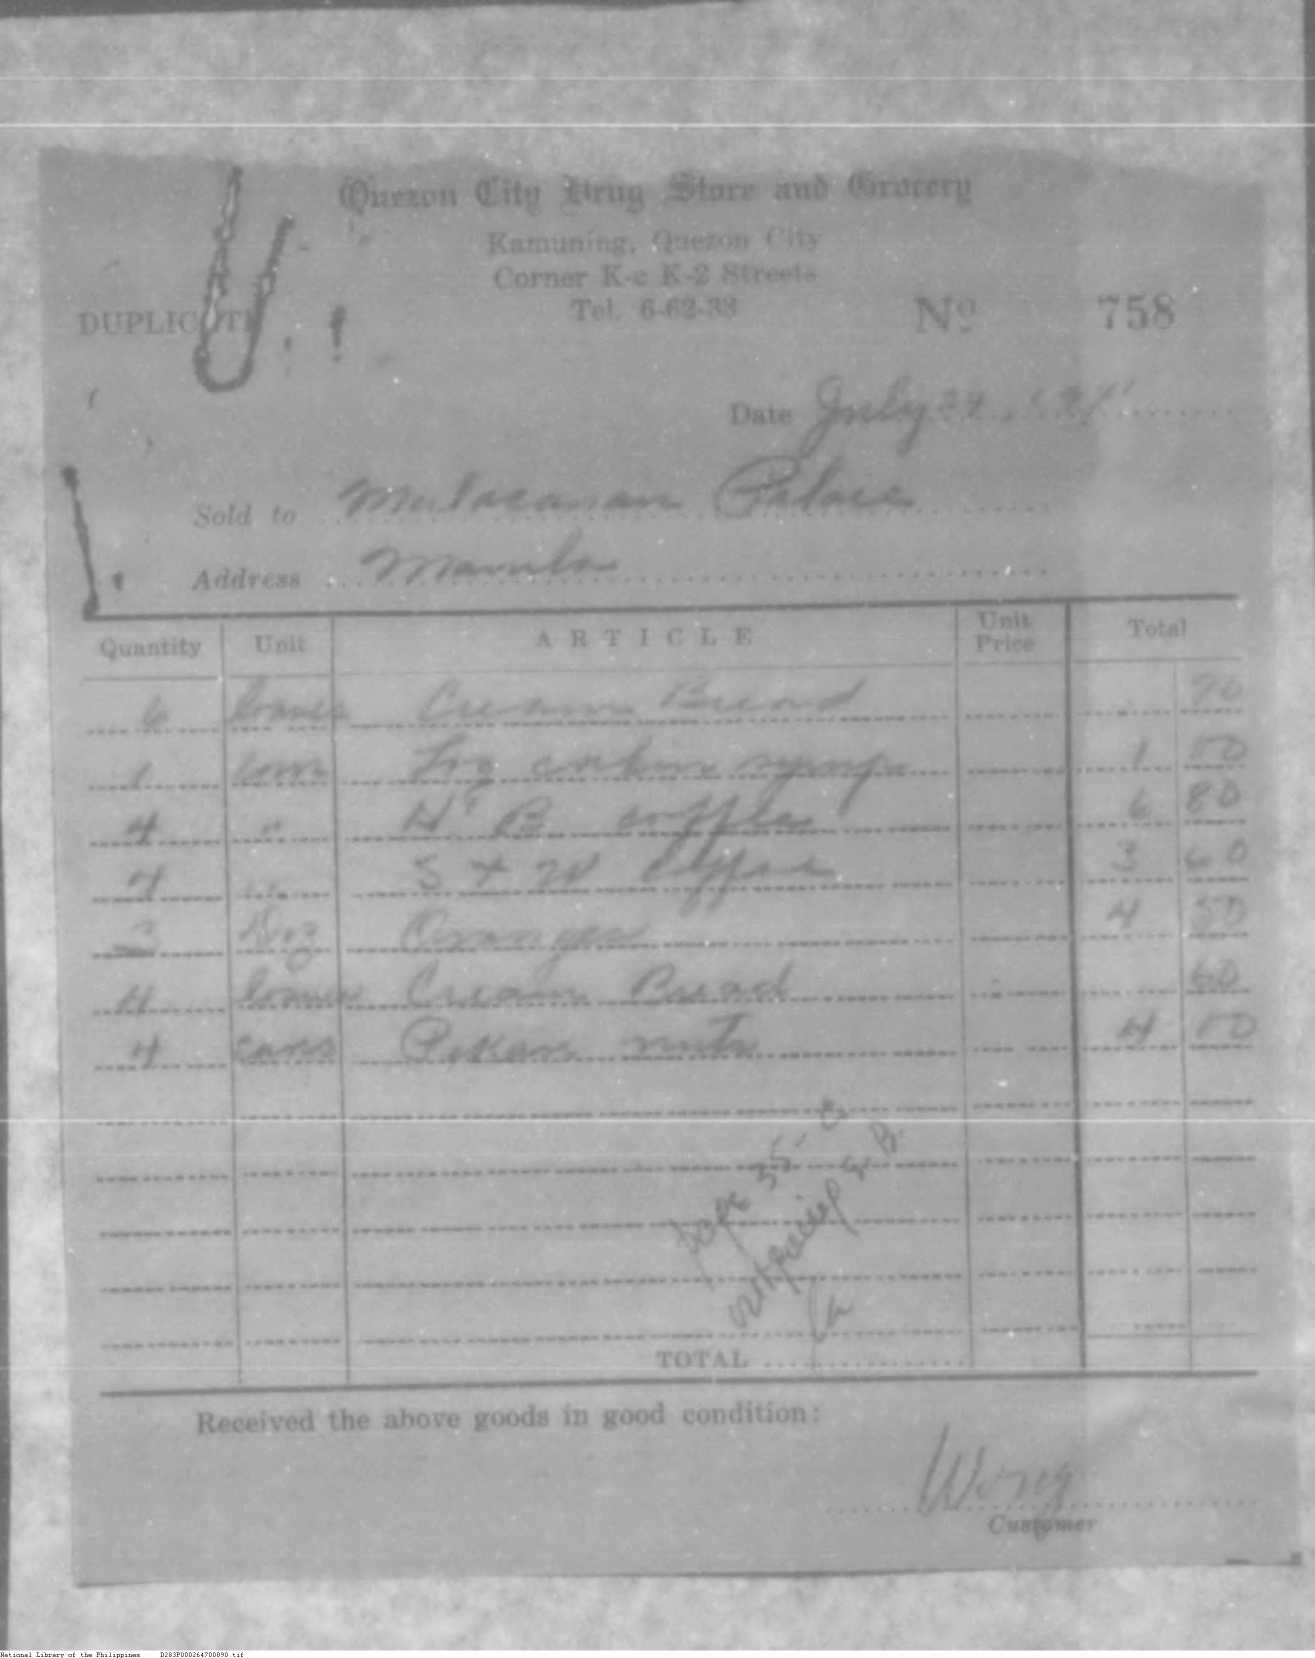 Quezon City Drug Store and Grocery
Kamuning, Quezon City
Corner K-c K-2 Streets
Tel. 6-62-38
DUPLICATE
Nº 758
Date July 24
Sold to Malacanan Palace
Address Manila
Quantity Unit ARTICLE Unit Price Total
6 loaves Cream Bread 90
1 can Log cabin syrup 1 00
4 " H B coffee 6 80
4 " S & W Coffee 3 60
3 Doz Oranges 4 50
4 loaves Cream Bread 60
4 cans Pekan nuts 4 00
TOTAL
Received the above goods in good condition:
Wong
Customer
National Library of the Philippines D283P000264700090.tif